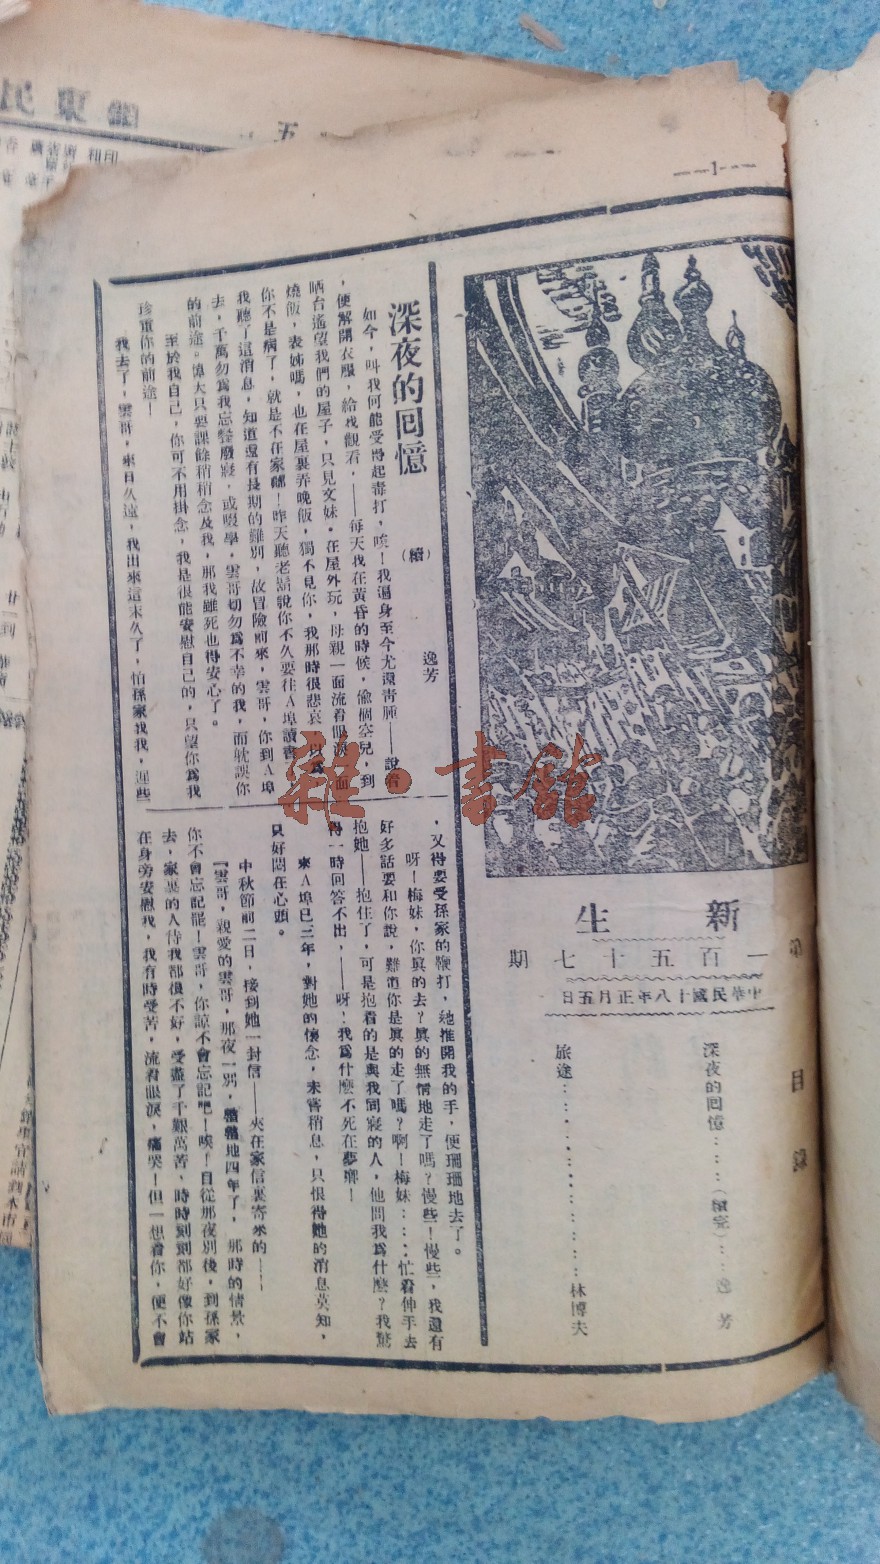 —1—
新生
第一百五十七期
中華民國十八年正月五日
目錄
深夜的回憶……(續完)……逸芳
旅途……………………林博夫
深夜的回憶
(續)
逸芳
如今，叫我何能受得起毒打，唉！我遍身至今尤還青腫——說着
，便解開衣服，給我觀看，——每天我在黃昏的時候，偷個空兒，到
晒台遙望我們的屋子，只見文妹，在屋外玩，母親一面流着眼淚一面
燒飯，表姊嗎，也在屋裏弄晚飯，獨不見你，我那時很悲哀，以為
你不是病了，就是不在家囉！昨天聽老
說你不久要往A埠讀書
我聽了這消息，知道還有長期的難別，故冒險前來，雲哥，你到A埠
去，千萬勿為我忘餐廢寢，或啜學，雲哥切勿為不幸的我，而躭誤你
的前途。偉大只要課餘稍稍念及我，那我雖死也得安心了。
至於我自己，你可不用掛念，我是很能安慰自己的，只望你為我
珍重你的前途！
我去了，雲哥，來日久遠，我出來這末久了，怕孫家找我，遲些
，又得要受孫家的鞭打，她推開我的手，便珊珊地去了。
呀！梅妹，你眞的去？眞的無情地走了嗎？慢些！慢些，我還有
好多話要和你說，難道你是眞的走了嗎？啊！梅妹……忙着伸手去
抱她——抱住了，可是抱着的是與我同寢的人，他問我為什麼？我驚
得一時回答不出，——呀！我為什麼不死在夢鄉！
來A埠已三年，對她的懷念，未嘗稍息，只恨得她的消息莫知，
只好悶在心頭。
中秋節前二日，接到她一封信——夾在家信裏寄來的——
『雲哥，親愛的雲哥，那夜一別，轆轆地四年了，那時的情景，
你不會忘記罷！雲哥，你諒不會忘記吧！唉！自從那夜別後，到孫家
去，家裏的人待我都很不好，受盡了千艱萬苦，時時刻刻都好像你站
在身旁安慰我，我有時受苦，流着眼淚，痛哭！但一想着你，便不會
雜·書館